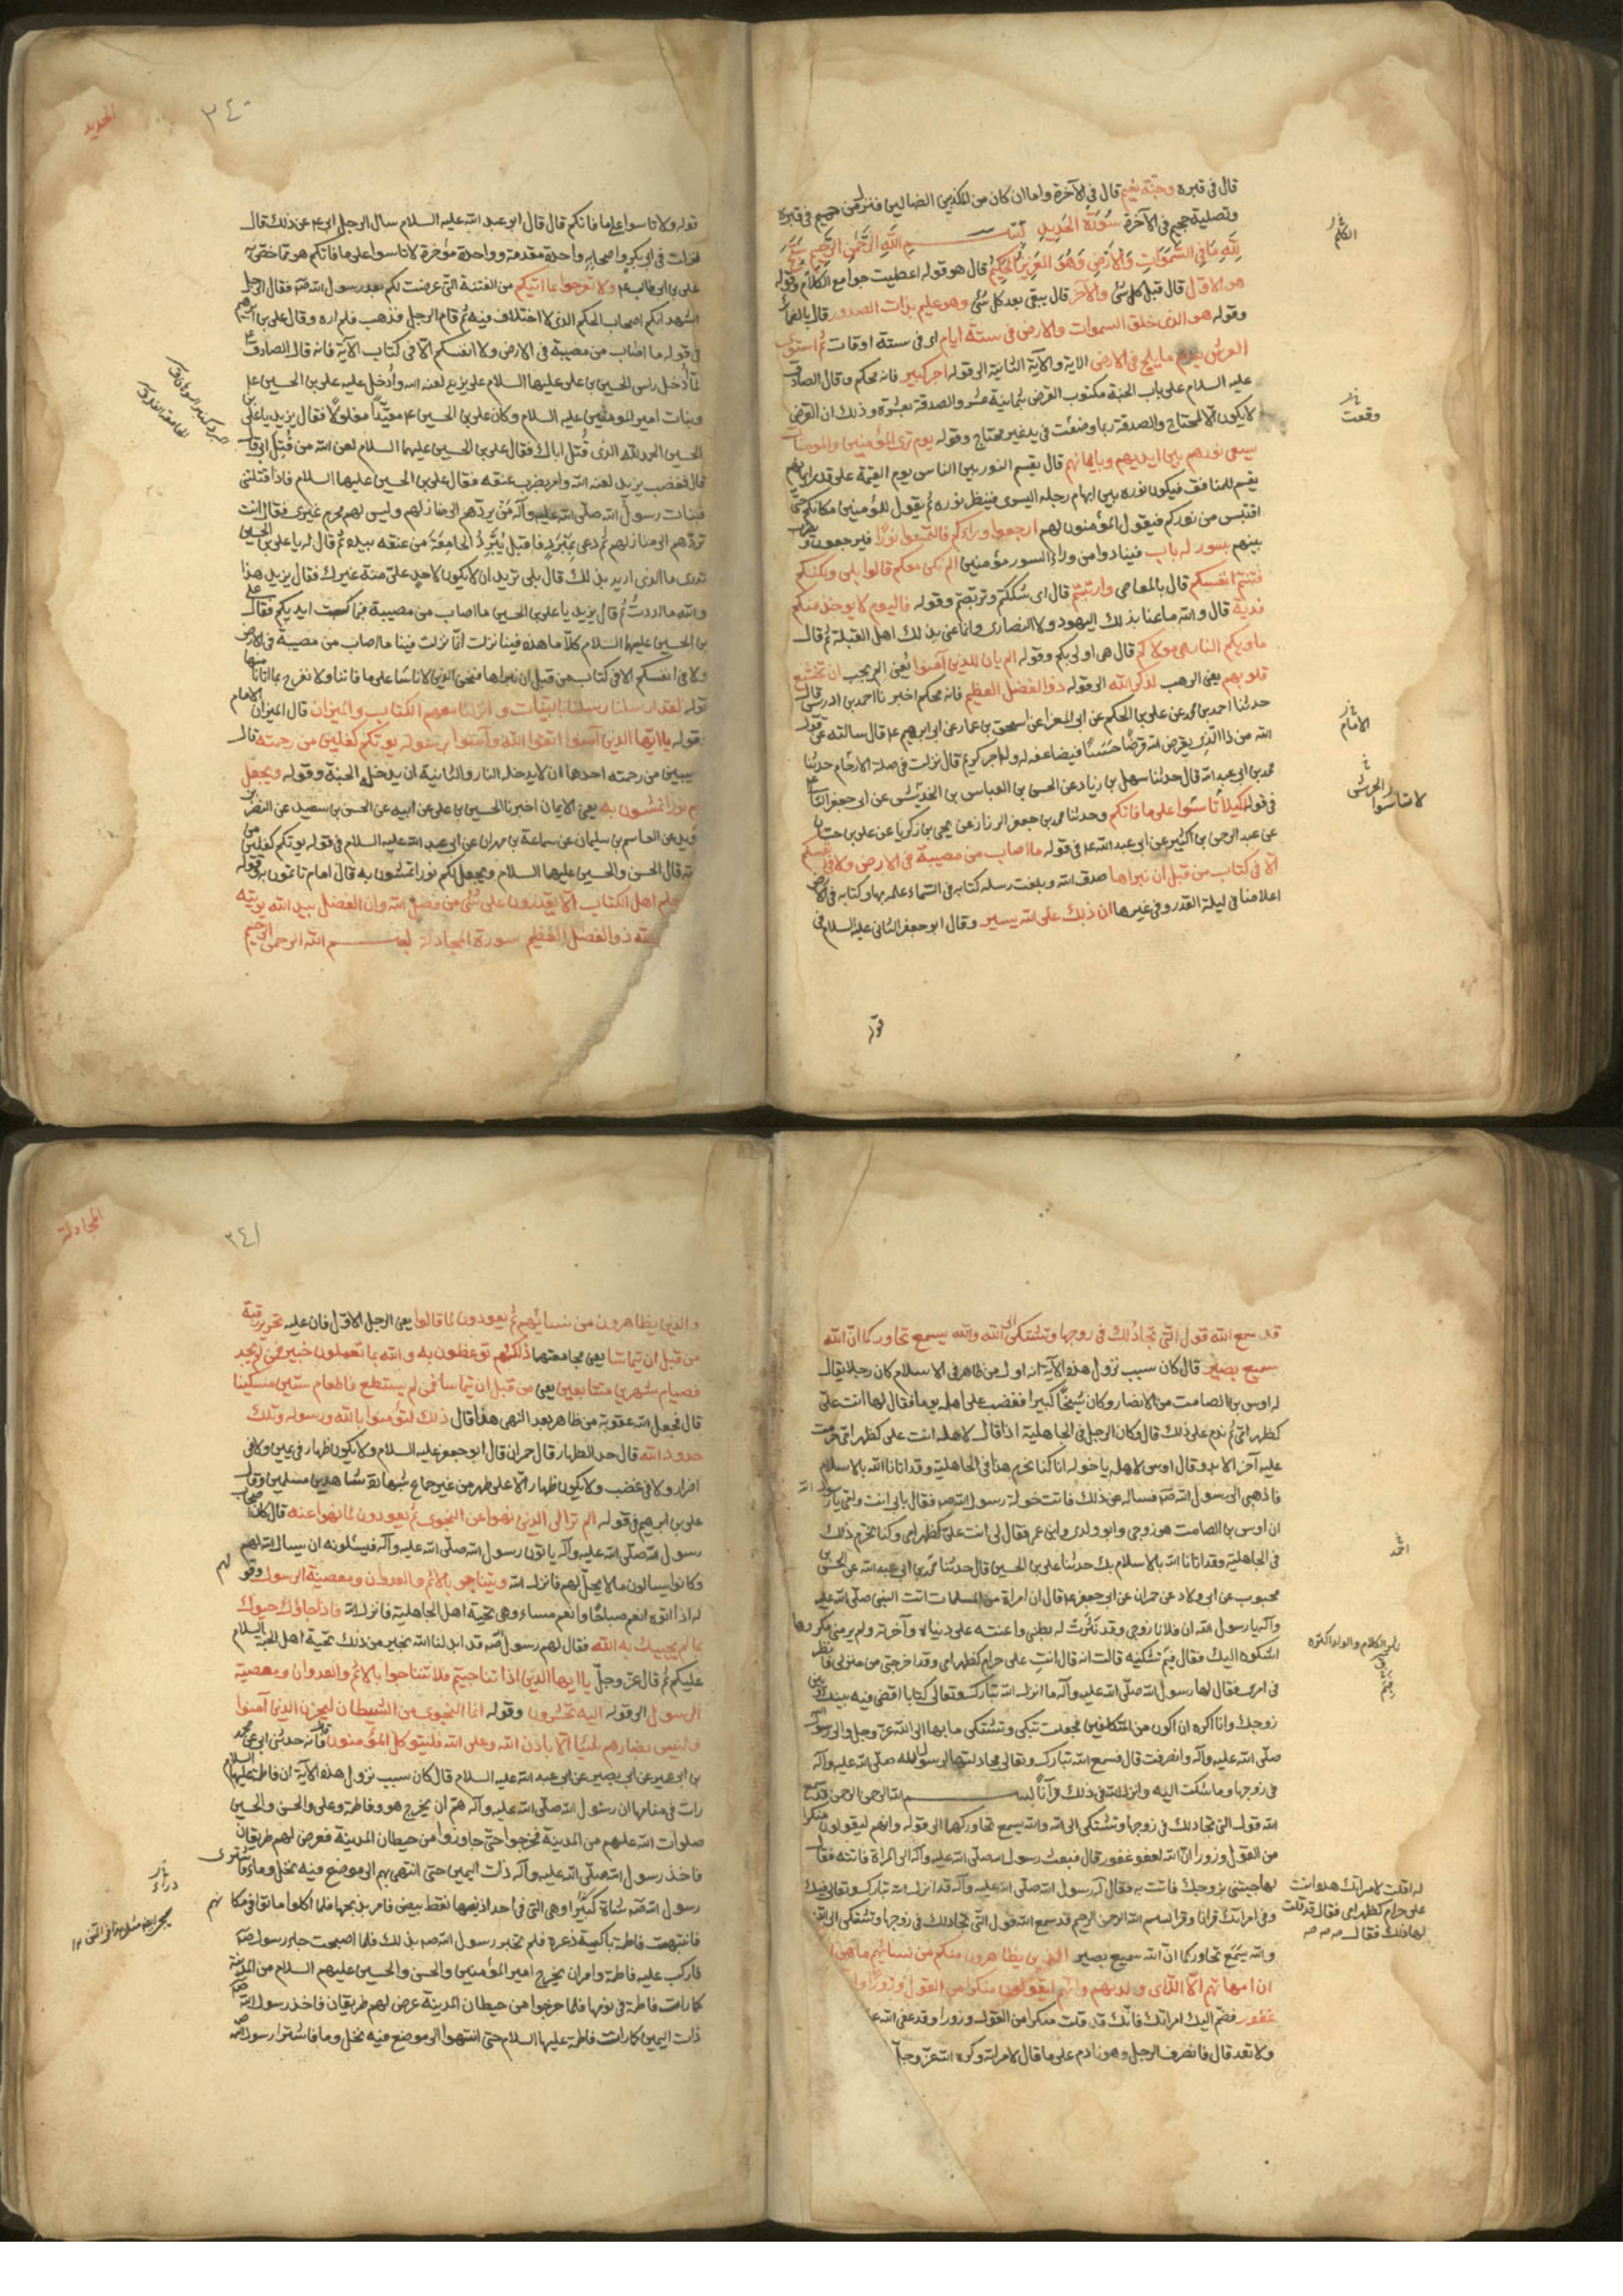 قال في قبره وجنة نعيم قال في الآخرة واما ان كان من المكذبين الضالين فنزل من حميم في قبره
وتصلية جحيم في الآخرة سورة الحديد بسم الله الرحمن الرحيم سبح
لله ما في السموات والارض وهو العزيز الحكيم قال هو قوله اعطيت جوامع الكلام وقوله
هو الاول قال قبل كل شئ والآخر قال يبقى بعد كل شئ وهو عليم بذات الصدور قال بالضمائر
وقوله هو الذى خلق السموات والارض في ستة ايام اى في ستة اوقات ثم استوى
العرش يعلم ما يلج في الارض الاية والآية الثانية الى قوله اجر كبير فانه محكم وقال الصادق
عليه السلام على باب الجنة مكتوب القرض بثمانية عشر والصدقة بعشرة وذلك ان القرض
لا يكون الا لمحتاج والصدقة ربما وضعت في يد غير محتاج وقوله يوم ترى المؤمنين والمؤمنات
يسعى نورهم بين ايديهم وبايمانهم قال يقسم النور بين الناس يوم القيمة على قدر ايمانهم
يقسم للمنافق فيكون نوره بين ابهام رجله اليسرى فينظر نوره ثم يقول للمؤمنين مكانكم حتى
اقتبس من نوركم فيقول المؤمنون لهم ارجعوا وراءكم فالتمسوا نورا فيرجعون و يضرب
بينهم بسور له باب فينادوا من وراء السور مؤمنين الم نكن معكم قالوا بلى ولكنكم
فتنتم انفسكم قال بالمعاصى وارتبتم قال اى شككتم وتربصتم وقوله فاليوم لا يوخذ منكم
فدية قال والله ما عنا بذلك اليهود ولا النصارى وانما عنى بذلك اهل القبلة ثم قال
ماويكم النار هى مولاكم قال هى اولى بكم وقوله الم يان للذين آمنوا يعنى الم يجب ان تخشع
قلوبهم يعنى الرهب لذكر الله الى قوله ذو الفضل العظيم فانه محكم اخبرنا احمد بن ادريس قال
حدثنا احمد بن محمد عن على بن الحكم عن ابى المعزا عن اسحق بن عمار عن ابى ابرهيم ع قال سالته عن قوله
الله من ذا الذى يقرض الله قرضا حسنا فيضاعفه له وله اجر كريم قال نزلت في صلة الارحام حدثنا
محمد بن ابى عبد الله قال حدثنا سهل بن زياد عن الحسن بن العباس بن الحريش عن ابى جعفر الثانى
في قوله لكيلا تاسوا على ما فاتكم وحدثنا محمد بن جعفر الرزاز عن يحيى بن زكريا عن على بن حسان
عن عبد الرحمن بن كثير عن ابى عبد الله ع في قوله ما اصاب من مصيبة في الارض ولا في انفسكم
الا في كتاب من قبل ان نبراها صدق الله وبلغت رسله كتابه في السماء علمه بها وكتابه في الارض
اعلامنا في ليلة القدر وفي غيرها ان ذلك على الله يسير وقال ابو جعفر الثانى عليه السلام في
قوله
الكلم
وقعت
الامام
الحريش
لا تاسوا
الحديد
٣٤٠
قوله ولا تاسوا على ما فاتكم قال قال ابو عبد الله عليه السلام سال الرجل ابى ع عن ذلك قال
نزلت في ابى بكر واصحابه واحدة مقدمة وواحدة مؤخرة لا تاسوا على ما فاتكم هو مما خص به
على بن ابى طالب ع ولا تفرحوا بما اتيكم من الفتنة التى عرضت لكم بعد رسول الله ص فقال الرجل
اشهد انكم اصحاب الحكم الذى لا اختلاف فيه ثم قام الرجل فذهب فلم اره وقال على بن ابرهيم
في قوله ما اصاب من مصيبة في الارض ولا انفسكم الا في كتاب الآية فانه قال الصادق ع
لما أدخل راس الحسين بن على عليهما السلام على يزيد لعنه الله وأدخل عليه على بن الحسين ع
وبنات امير المؤمنين عليه السلام وكان على بن الحسين ع مقيدا مغلولا فقال يزيد يا على بن
الحسين الحمد لله الذى قتل اباك فقال على بن الحسين عليهما السلام لعن الله من قتل ابى
قال فغضب يزيد لعنه الله وامر بضرب عنقه فقال على بن الحسين عليهما السلام فاذا قتلتنى
فبنات رسول الله صلى الله عليه وآله من يردهم الى منازلهم وليس لهم محرم غيرى فقال انت
تردهم الى منازلهم ثم دعى بمبرد فاقبل يبرد الجامعة من عنقه بيده ثم قال له يا على بن الحسين
تدرى ما الذى اريد بذلك قال بلى تريد ان لا يكون لاحد على منة غيرك فقال يزيد هذا
والله ما اردت ثم قال يزيد يا على بن الحسين ما اصاب من مصيبة فبما كسبت ايديكم فقال على
بن الحسين عليهما السلام كلا ما هذه فينا نزلت انما نزلت فينا ما اصاب من مصيبة في الارض
ولا في انفسكم الا في كتاب من قبل ان نبراها فنحن الذين لا ناسا على ما فاتنا ولا نفرح بما اتانا منها
قوله لقد ارسلنا رسلنا بالبينات وانزلنا معهم الكتاب والميزان قال الميزان الامام
قوله يا ايها الذين آمنوا اتقوا الله وآمنوا برسوله يوتكم كفلين من رحمته قال
نصيبين من رحمته احدهما ان لا يدخله النار والثانية ان يدخله الجنة وقوله ويجعل
لكم نورا تمشون به يعنى الايمان اخبرنا الحسين بن على عن ابيه عن الحسن بن سعيد عن النضر بن
سويد عن القاسم بن سليمان عن سماعة بن مهران عن ابى عبد الله عليه السلام في قوله يوتكم كفلين من
رحمته قال الحسن والحسين عليهما السلام ويجعل لكم نورا تمشون به قال امام تاتمون به وقوله
لئلا يعلم اهل الكتاب الا يقدرون على شئ من فضل الله وان الفضل بيد الله يوتيه
والله ذو الفضل العظيم سورة المجادلة بسم الله الرحمن الرحيم
قد سمع الله قول التى تجادلك في زوجها وتشتكى الى الله والله يسمع تحاوركما ان الله
سميع بصير قال كان سبب نزول هذه الآية انه اول من ظاهر في الاسلام كان رجلا يقال
له اوس بن الصامت من الانصار وكان شيخا كبيرا فغضب على اهله يوما فقال لها انت على
كظهر امى ثم ندم على ذلك قال وكان الرجل في الجاهلية اذا قال لاهله انت على كظهر امى حرمت
عليه آخر الابد وقال اوس لاهله يا خوله انا كنا نحرم هذا في الجاهلية وقد اتانا الله بالاسلام
فاذهبى الى رسول الله ص فساله عن ذلك فاتت خولة رسول الله ص فقال بابى انت وامى يا رسول الله
ان اوس بن الصامت هو زوجى وابو ولدى وابن عمى فقال لى انت على كظهر امى وكنا نحرم ذلك
في الجاهلية وقد اتانا الله بالاسلام بك حدثنا على بن الحسين قال حدثنا محمد بن ابى عبد الله عن الحسن بن
محبوب عن ابى ولاد عن حمران عن ابى جعفر ع قال ان امراة من المسلمات اتت النبى صلى الله عليه
وآله يا رسول الله ان فلانا زوجى وقد نثرت له بطنى واعنته على دنياه وآخرته ولم ير منى مكروها
اشكوه اليك فقال فيم تشكينه قالت انه قال انت على حرام كظهر امى وقد اخرجنى من منزلى فانظر
في امرى فقال لها رسول الله صلى الله عليه وآله ما انزل الله تبارك وتعالى كتابا اقضى فيه بينك وبين
زوجك وانا اكره ان اكون من المتكلفين فجعلت تبكى وتشتكى ما بها الى الله عز وجل والى رسول الله
صلى الله عليه وآله وانصرفت قال فسمع الله تبارك وتعالى مجادلتها لرسول الله صلى الله عليه وآله
في زوجها وما شكت اليه وانزل الله في ذلك قرآنا بسم الله الرحمن الرحيم قد سمع
الله قول التى تجادلك في زوجها وتشتكى الى الله والله يسمع تحاوركما الى قوله وانهم ليقولون منكرا
من القول وزورا ان الله لعفو غفور قال فبعث رسول الله صلى الله عليه وآله الى المراة فاتته فقال
لها جيئينى بزوجك فاتت به فقال له رسول الله صلى الله عليه وآله قد انزل الله تبارك وتعالى فيك
وفى امراتك قرانا وقرا بسم الله الرحمن الرحيم قد سمع الله قول التى تجادلك في زوجها وتشتكى الى الله
والله يسمع تحاوركما ان الله سميع بصير الذين يظاهرون منكم من نسائهم ما هن
ان امهاتهم الا اللائى ولدنهم وانهم ليقولون منكرا من القول وزورا وان
غفور فضم اليك امراتك فانك قد قلت منكرا من القول وزورا وقد عفى الله
ولا تعد قال فانصرف الرجل وهو نادم على ما قال لامراته وكره الله عز وجل
احمد
له اقلت لامراتك هذه انت
على حرام كظهر امى فقال قد قلت
لها ذلك فقال
المجادلة
٣٤١
والذين يظاهرون من نسائهم ثم يعودون لما قالوا يعنى الرجل الاول فان عليه تحرير رقبة
من قبل ان يتماسا يعنى مجامعتها ذلكم توعظون به والله بما تعملون خبير فمن لم يجد
فصيام شهرين متتابعين يعنى من قبل ان يتماسا فمن لم يستطع فاطعام ستين مسكينا
قال فجعل الله عقوبة من ظاهر بعد النهى هذا قال ذلك لتؤمنوا بالله ورسوله وتلك
حدود الله قال حد الظهار قال حمران قال ابو جعفر عليه السلام ولا يكون ظهار في يمين ولا في
اضرار ولا في غضب ولا يكون ظهار الا على طهر من غير جماع بشهادة شاهدين مسلمين وقال
على بن ابرهيم في قوله الم تر الى الذين نهوا عن النجوى ثم يعودون لما نهوا عنه قال كان اصحاب
رسول الله صلى الله عليه وآله ياتون رسول الله صلى الله عليه وآله فيسئلونه ان يسال الله لهم
وكانوا يسالون ما لا يحل لهم فانزل الله ويتناجون بالاثم والعدوان ومعصية الرسول وقولهم
له اذا اتوه انعم صباحا وانعم مساء وهى تحية اهل الجاهلية فانزل الله فاذا جاؤك حيوك
بما لم يحييك به الله فقال لهم رسول الله ص قد ابدلنا الله بخير من ذلك تحية اهل الجنة السلام
عليكم ثم قال عز وجل يا ايها الذين اذا تناجيتم فلا تتناجوا بالاثم والعدوان ومعصية
الرسول الى قوله اليه تحشرون وقوله انما النجوى من الشيطان ليحزن الذين آمنوا
وليس بضارهم شيئا الا باذن الله وعلى الله فليتوكل المؤمنون فانه حدثنى ابى عن محمد
بن ابى عمير عن ابى بصير عن ابى عبد الله عليه السلام قال كان سبب نزول هذه الآية ان فاطمة عليها السلام
رات في منامها ان رسول الله صلى الله عليه وآله هم ان يخرج هو وفاطمة وعلى والحسن والحسين
صلوات الله عليهم من المدينة فخرجوا حتى جاوزوا من حيطان المدينة فعرض لهم طريقان
فاخذ رسول الله صلى الله عليه وآله ذات اليمين حتى انتهى بهم الى موضع فيه نخل وماء فاشترى
رسول الله ص شاة كبراء وهى التى في احد اذنيها نقط بيض فامر بذبحها فلما اكلوا ماتوا في مكانهم
فانتبهت فاطمة باكية ذعرة فلم تخبر رسول الله ص بذلك فلما اصبحت جاء رسول الله ص
فاركب عليه فاطمة وامر ان يخرج امير المؤمنين والحسن والحسين عليهم السلام من المدينة
كما رات فاطمة في نومها فلما خرجوا من حيطان المدينة عرض لهم طريقان فاخذ رسول الله ص
ذات اليمين كما رات فاطمة عليها السلام حتى انتهوا الى موضع فيه نخل وما فاشترا رسول الله ص